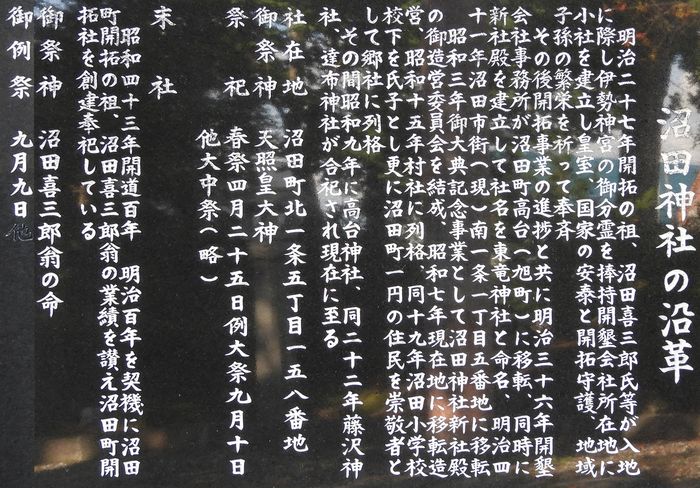 沼田神社の沿革
明治二十七年開拓の祖、沼田喜三郎氏等が入地
に際し伊勢神宮の御分霊を捧持開墾会社所在地に
小社を建立し皇室、国家の安泰と開拓守護、地域
子孫の繁栄を祈って奉斉
その後開拓事業の進捗と共に明治三十六年開墾
会社事務所が沼田町高台（旭町）に移転、同時に
新社殿を建立して社名を東竜神社と命名、明治四
十一年沼田市街（現）南一条一丁目五番地に移転
昭和三年御大典記念事業として沼田神社新社殿
の御造営委員会を結成、昭和七年現在地に移転造
営、昭和十五年村社に列格、同十九年沼田小学校
校下を氏子とし更に沼田町一円の住民を崇敬者と
して郷社に列格
その間昭和九年に高台神社、同二十二年藤沢神
社、達布神社が合祀され現在に至る
社在地　沼田町北一条五丁目一五八番地
御祭神　天照皇大神
祭祀　春祭四月二十五日例大祭九月十日
他大中祭（略）
末社
昭和四十三年開道百年　明治百年を契機に沼田
町開拓の祖、沼田喜三郎翁の業績を讃え沼田町開
拓社を創建奉祀している
御祭神　沼田喜三郎翁の命
御例祭　九月九日 他